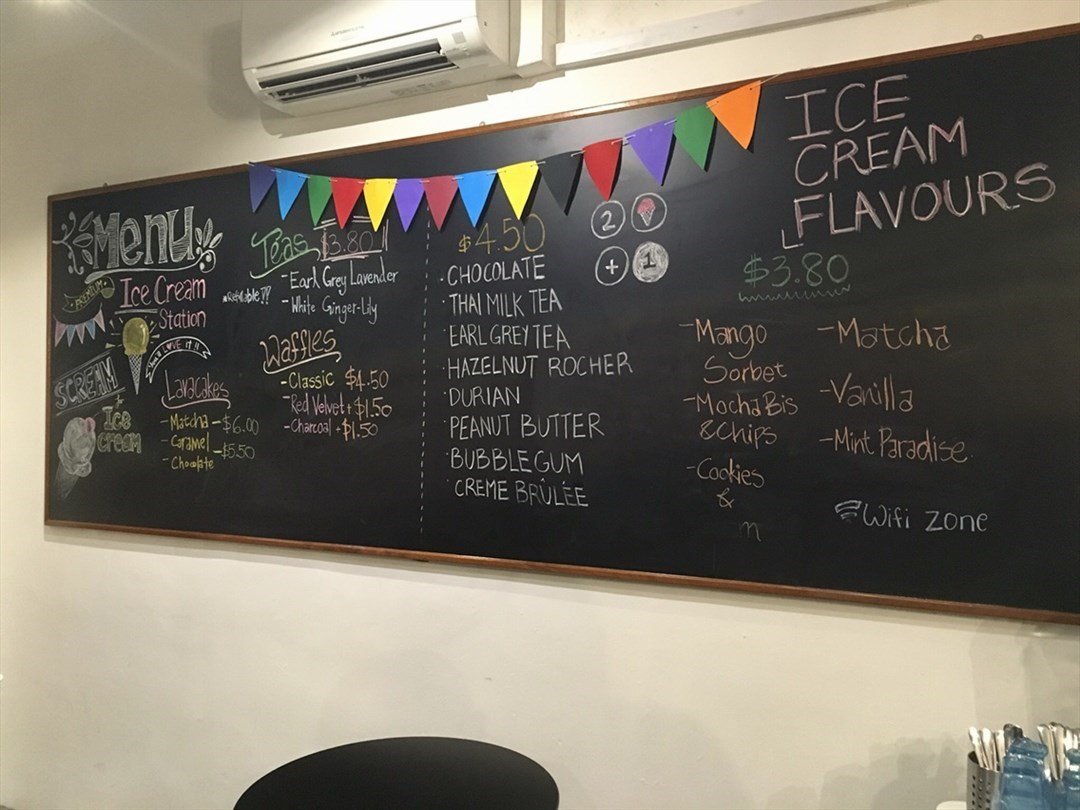 Menu
PREMIUM
Ice Cream
Station
You'll LOVE it!!
SCREAM
+
Ice
cream
LavaCakes
- Matcha - $6.00
- Caramel
- Chocolate - $5.50
Teas $3.80
*Refillable!!
- Earl Grey Lavender
- White Ginger-Lily
Waffles
- Classic $4.50
- Red Velvet + $1.50
- Charcoal + $1.50
$4.50
· CHOCOLATE
· THAI MILK TEA
· EARL GREY TEA
· HAZELNUT ROCHER
· DURIAN
· PEANUT BUTTER
· BUBBLEGUM
· CREME BRÛLÉE
2
+ 1
ICE
CREAM
FLAVOURS
$3.80
- Mango
Sorbet
- Mocha Bis
& Chips
- Cookies
&
- Matcha
- Vanilla
- Mint Paradise
Wifi zone